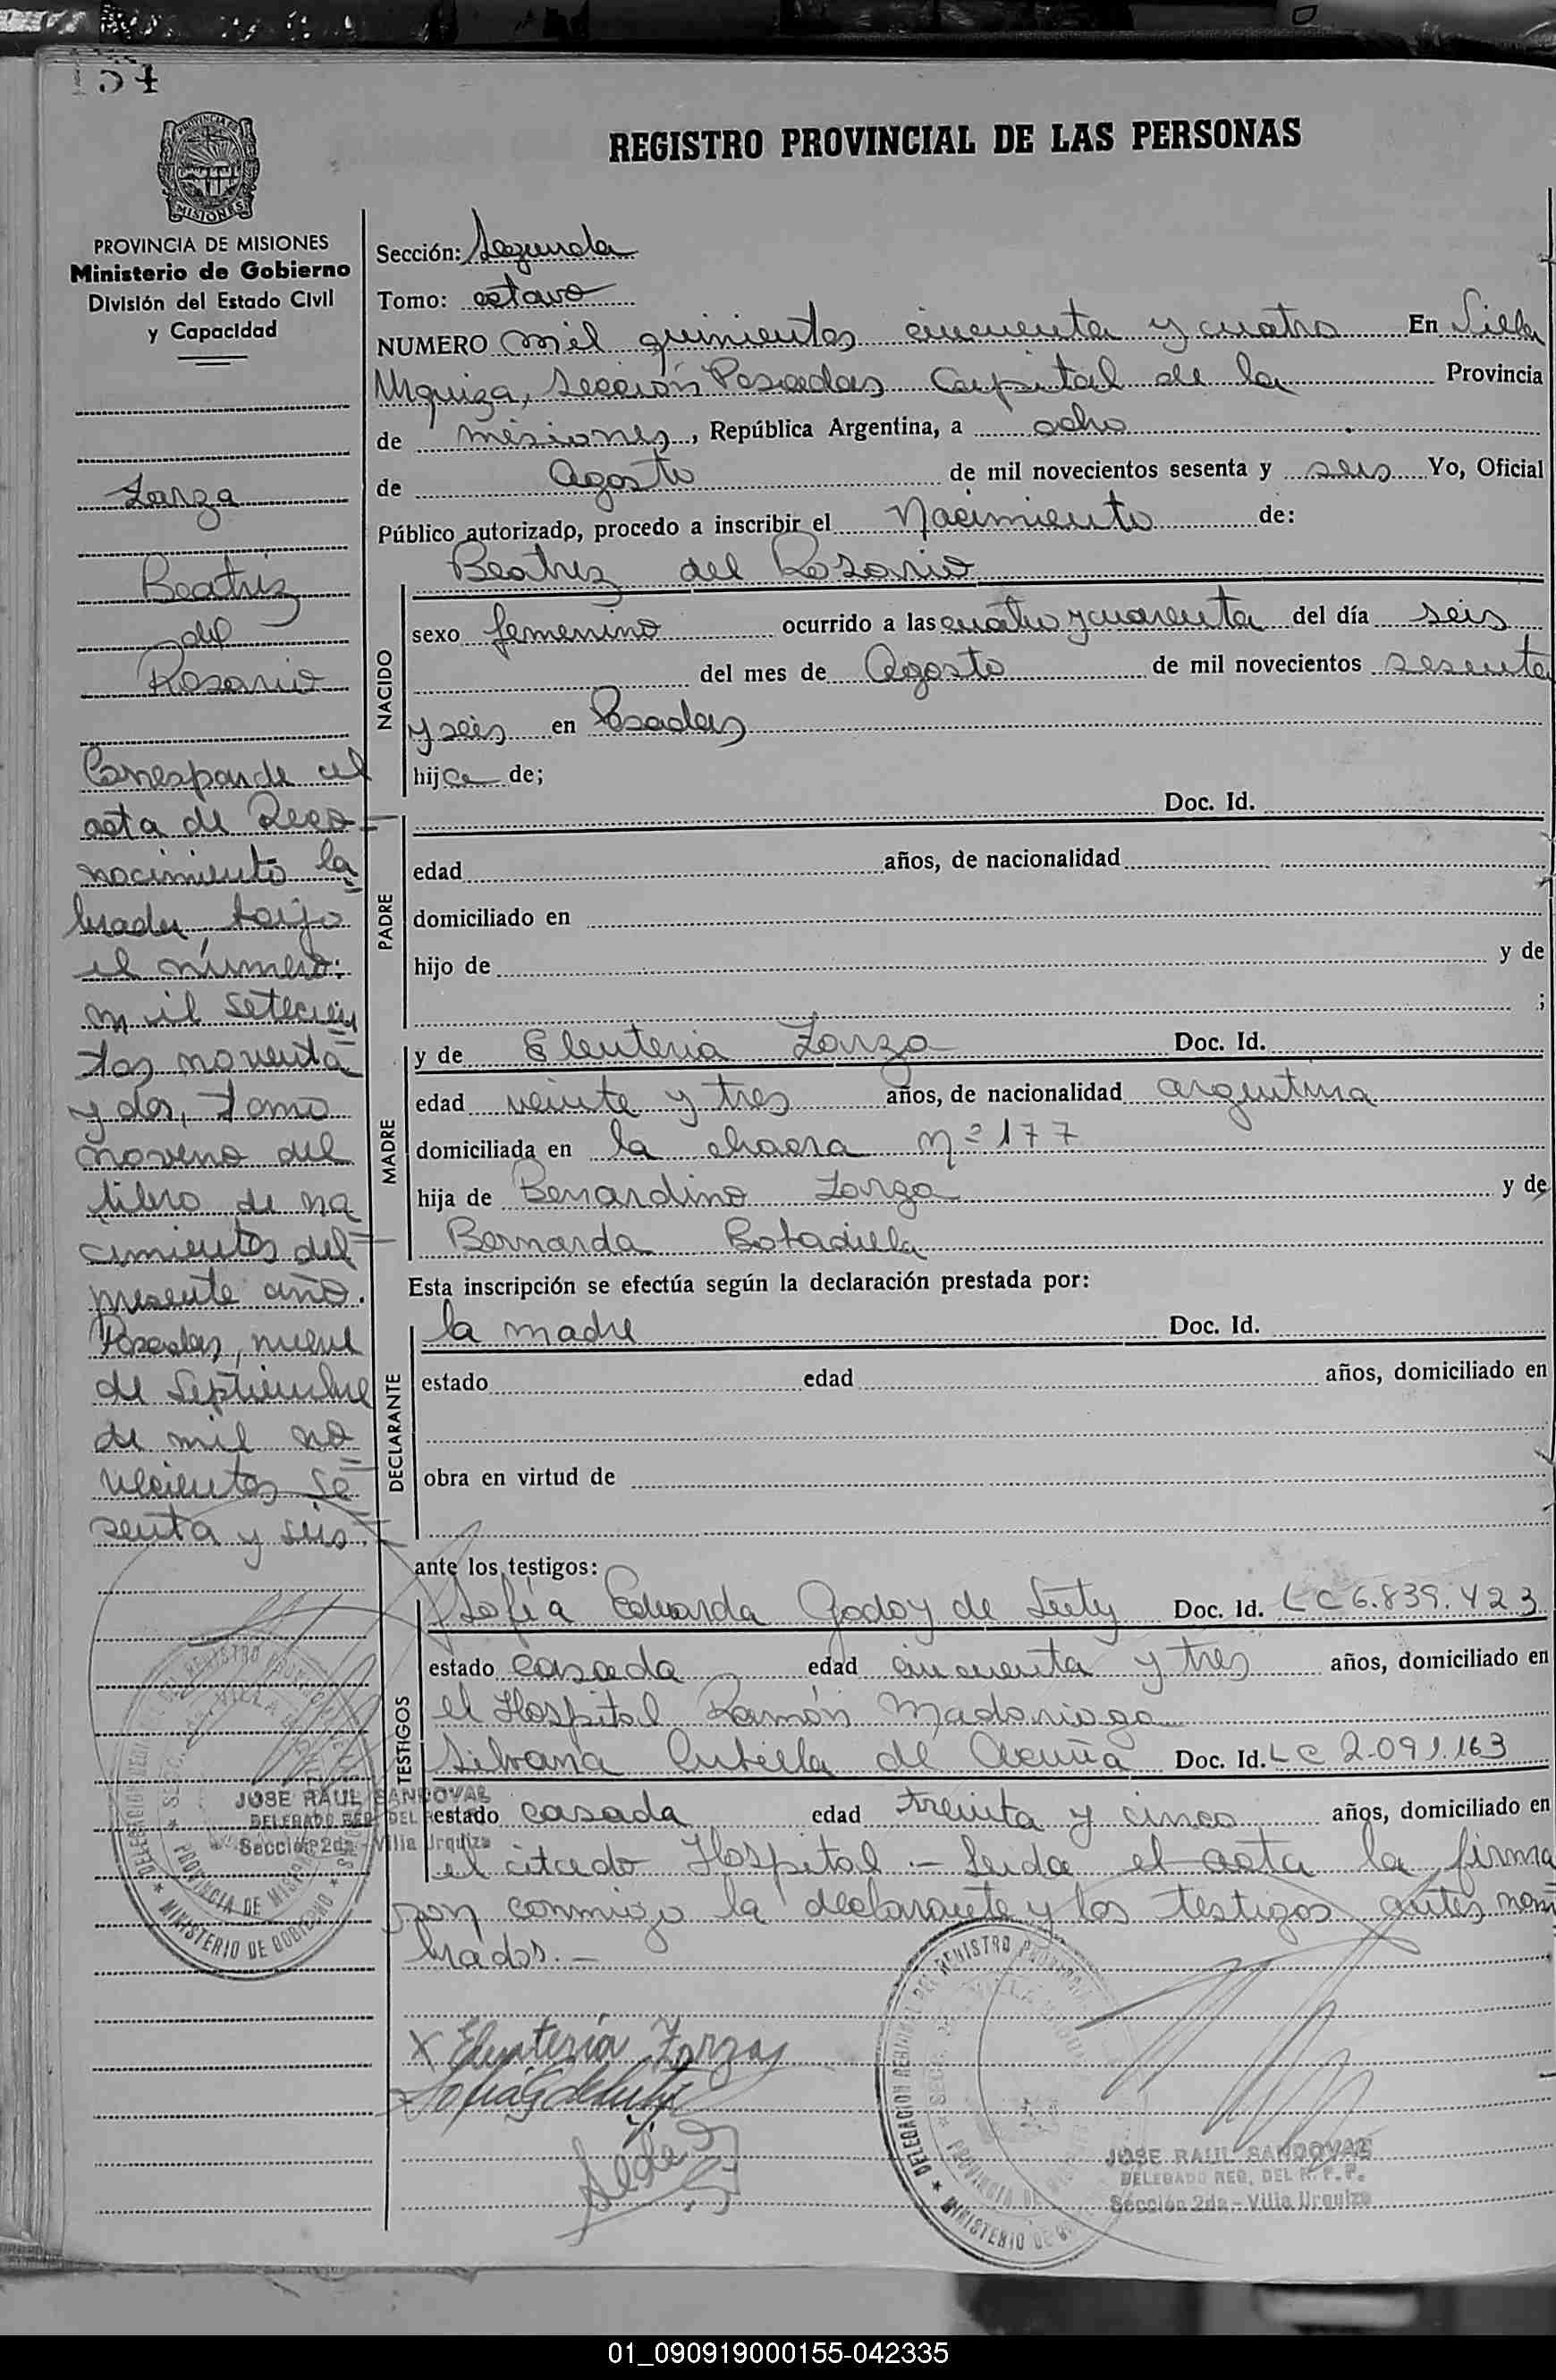 154
PROVINCIA DE MISIONES
MISIONES
PROVINCIA DE MISIONES
Ministerio de Gobierno
División del Estado Civil
y Capacidad
Zarza
Beatriz
del
Rosario
Corresponde al
acta de Reco
nocimiento la
brada, bajo
el número:
mil setecien
tos noventa
y dos, tomo
noveno del
libro de na
cimientos del
presente año.
Posadas, nueve
de Septiembre
de mil no
vecientos se
senta y seis.
JOSE RAUL SANDOVAL
DELEGADO REG. DEL
Sección 2da - Villa Urquiza
REGISTRO PROVINCIAL DE LAS PERSONAS
Sección: Segunda
Tomo: octavo
NUMERO mil quinientos cincuenta y cuatro En Villa
Urquiza, Sección Posadas Capital de la Provincia
de misiones, República Argentina, a ocho
de Agosto de mil novecientos sesenta y seis Yo, Oficial
Público autorizado, procedo a inscribir el Nacimiento de:
Beatriz del Rosario
NACIDO
sexo femenino ocurrido a las cuatro y cuarenta del día seis
del mes de Agosto de mil novecientos sesenta
y seis en Posadas
hija de;
PADRE
Doc. Id.
edad años, de nacionalidad
domiciliado en
hijo de y de
;
MADRE
y de Eleuteria Zarza Doc. Id.
edad veinte y tres años, de nacionalidad argentina
domiciliada en la chacra Nº 177
hija de Benardino Zarza y de
Bernarda Bobadilla
Esta inscripción se efectúa según la declaración prestada por:
DECLARANTE
la madre Doc. Id.
estado edad años, domiciliado en
obra en virtud de
ante los testigos:
TESTIGOS
Sofía Eduarda Godoy de Doc. Id. LC 6.839.423
estado casada edad cincuenta y tres años, domiciliado en
el Hospital Ramón Madariaga
Silvana Cubilla de Acuña Doc. Id. LC 2.091.163
estado casada edad treinta y cinco años, domiciliado en
el citado Hospital.- Leida el acta la firma
ron conmigo la declarante y los testigos antes nom
brados.-
x Eleuteria Zarza
DELEGACION REGIONAL DEL REGISTRO PROVINCIAL
MINISTERIO DE GOBIERNO
PROVINCIA DE MISIONES
JOSE RAUL SANDOVAL
DELEGADO REG. DEL R. P. P.
Sección 2da - Villa Urquiza
01_090919000155-042335